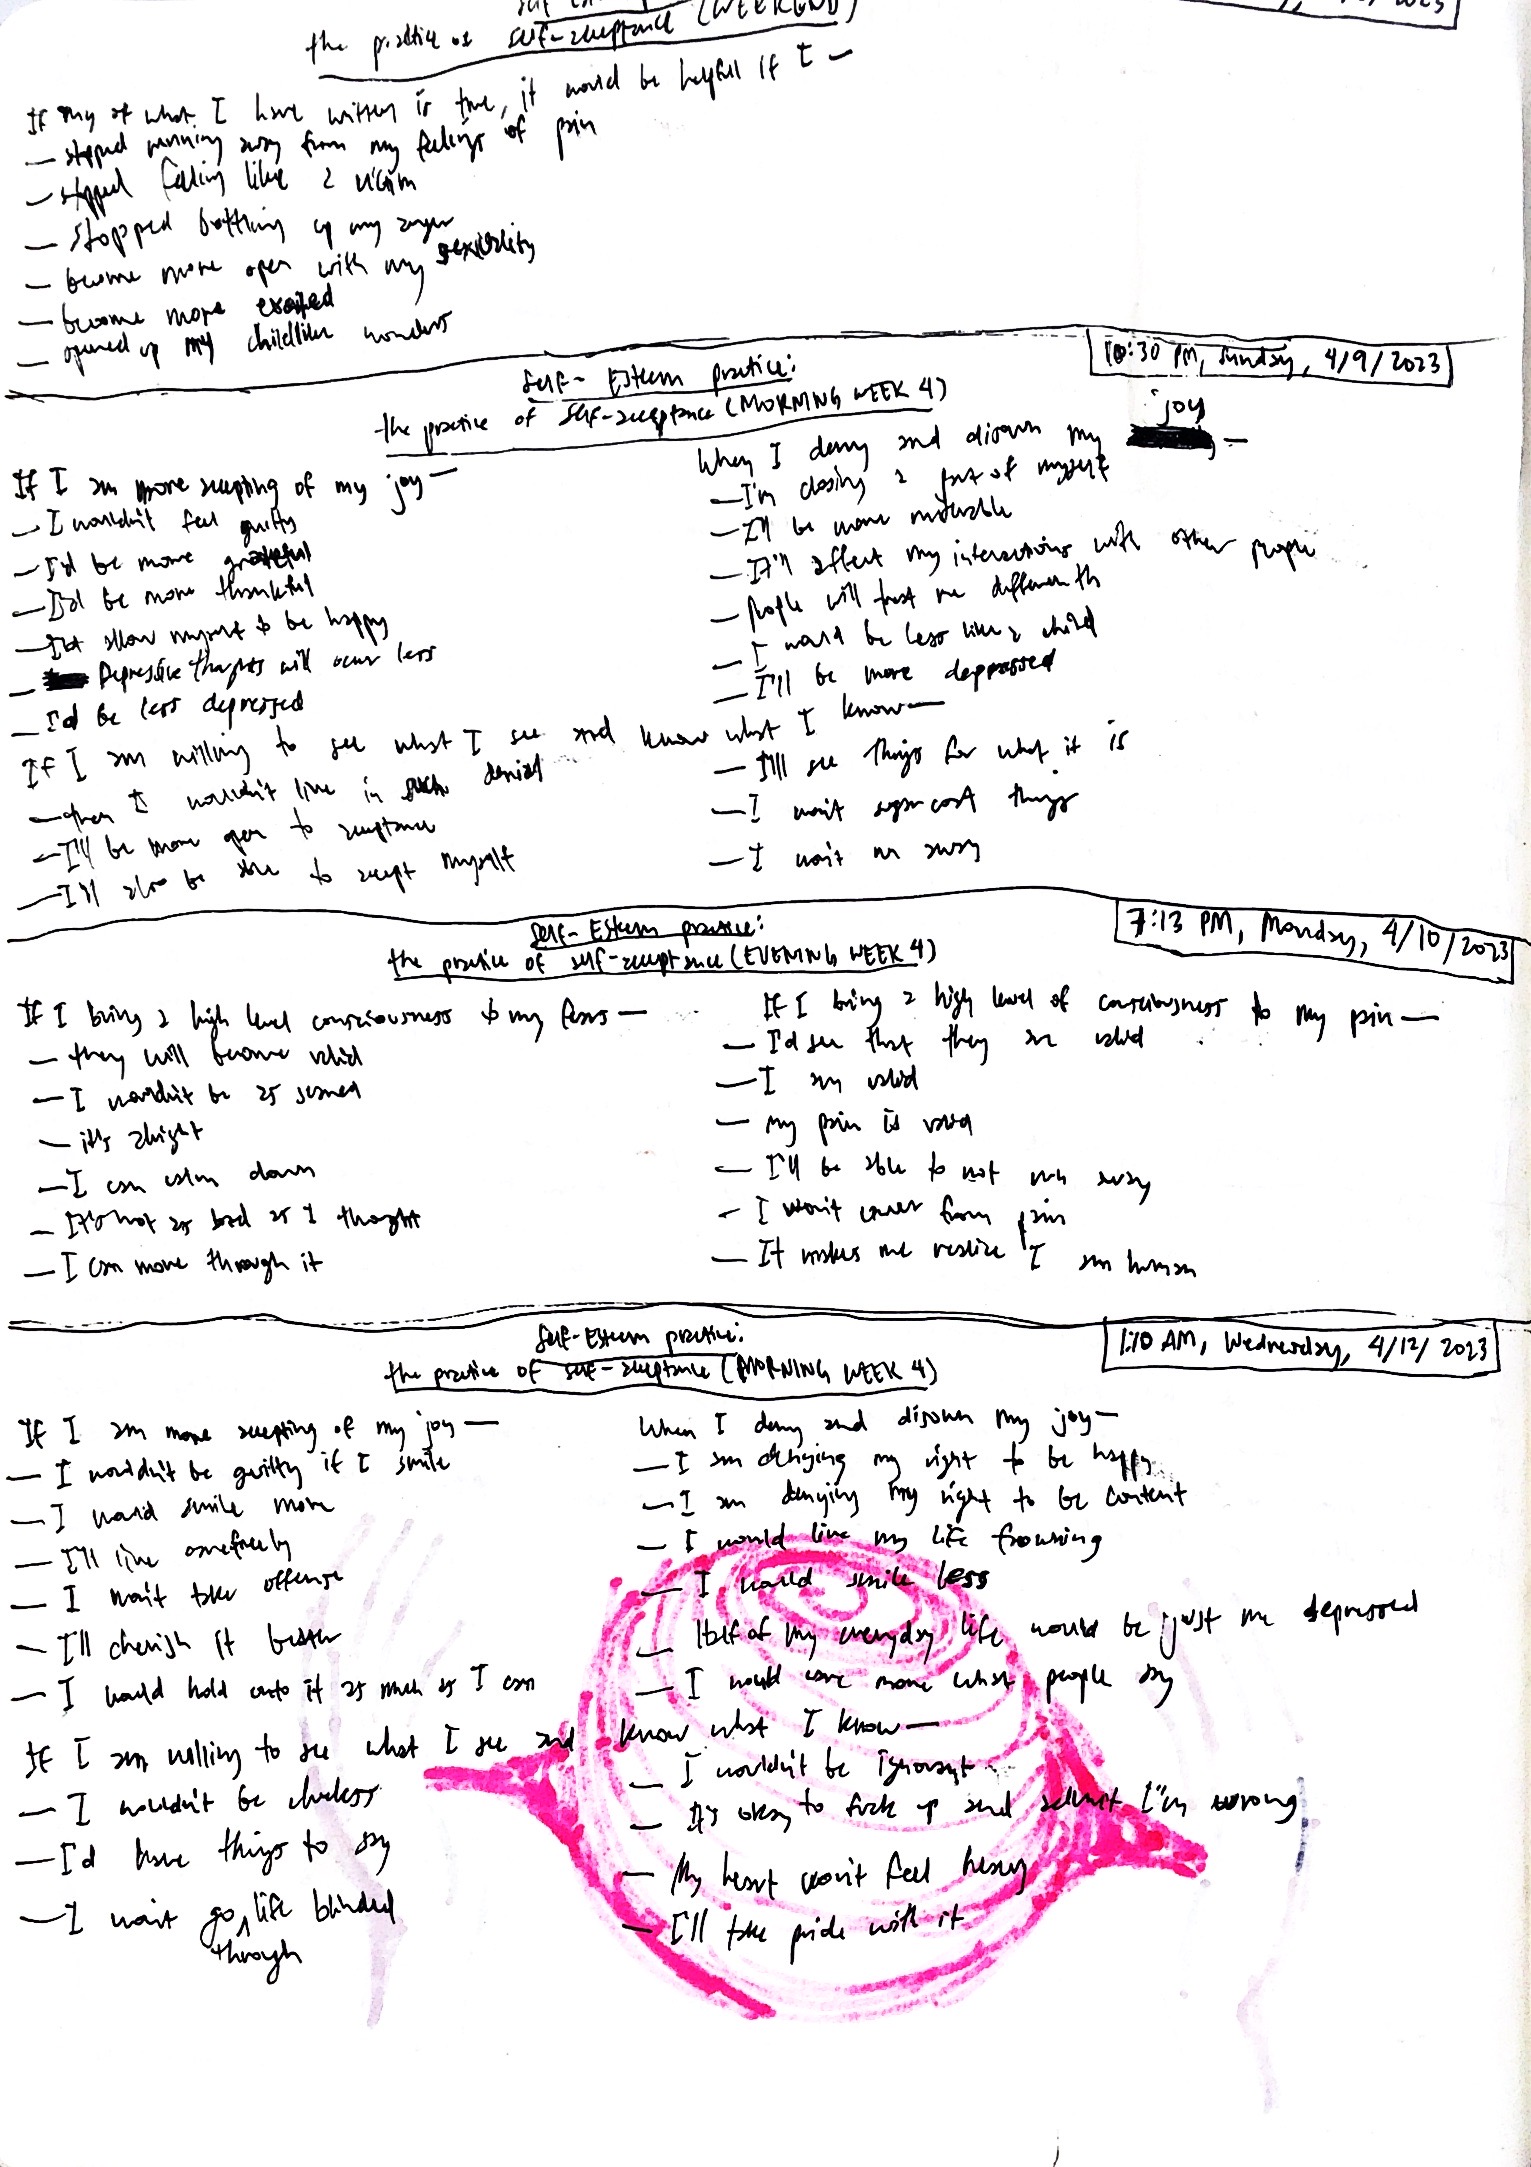 the practice of self-acceptance (WEEKEND)
If any of what I have written is true, it would be helpful if I —
— stopped running away from my feelings of pain
— stopped feeling like a victim
— stopped bottling up my anger
— become more open with my sexuality
— become more excited
— opened up my childlike wonders
10:30 PM, Sunday, 4/9/2023
Self-Esteem practice:
the practice of self-acceptance (MORNING WEEK 4)
If I am more accepting of my joy —
— I wouldn't feel guilty
— I'd be more grateful
— I'd be more thankful
— I'd allow myself to be happy
— Depressive thoughts will occur less
— I'd be less depressed
When I deny and disown my joy —
— I'm closing a part of myself
— I'll be more miserable
— It'll affect my interactions with other people
— People will treat me differently
— I would be less like a child
— I'll be more depressed
If I am willing to see what I see and know what I know —
— then I wouldn't live in such denial
— I'll be more open to acceptance
— I'll also be able to accept myself
— I'll see things for what it is
— I won't sugarcoat things
— I won't run away
7:13 PM, Monday, 4/10/2023
Self-Esteem practice:
the practice of self-acceptance (EVENING WEEK 4)
If I bring a high level consciousness to my fears —
— they will become valid
— I wouldn't be as scared
— it's alright
— I can calm down
— It's not as bad as I thought
— I can move through it
If I bring a high level of consciousness to my pain —
— I'd see that they are valid
— I am valid
— my pain is valid
— I'll be able to not run away
— I won't cower from pain
— It makes me realize I am human
1:10 AM, Wednesday, 4/12/2023
Self-Esteem practice:
the practice of self-acceptance (MORNING WEEK 4)
If I am more accepting of my joy —
— I wouldn't be guilty if I smile
— I would smile more
— I'll live carefreely
— I won't take offense
— I'll cherish it better
— I would hold onto it as much as I can
When I deny and disown my joy —
— I am denying my right to be happy
— I am denying my right to be content
— I would live my life frowning
— I would smile less
— Half of my everyday life would be just me depressed
— I would care more what people say
If I am willing to see what I see and know what I know —
— I wouldn't be clueless
— I'd have things to say
— I won't go through life blinded
— I wouldn't be ignorant
— It's okay to fuck up and admit I'm wrong
— My heart won't feel heavy
— I'll take pride with it